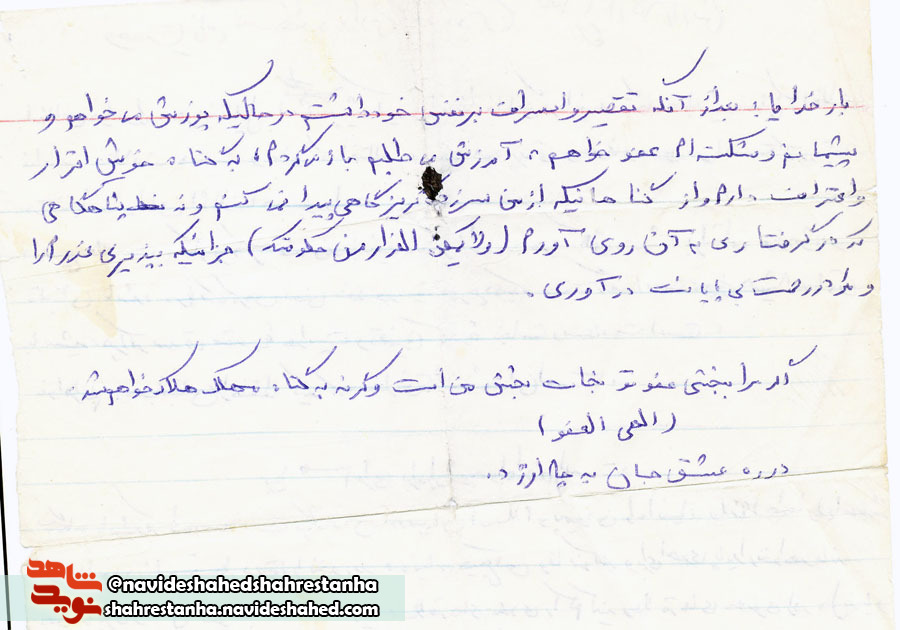 بار خدایا؛ بعد از آنکه تقصیر و اسراف بر نفس خود داشتم در حالیکه پوزش می خواهم و
پشیمانم و شکسته ام عفو خواهم، آمرزش می طلبم بازمیگردم، به گناه خویش اقرار
و اعتراف دارم و از گناهانیکه از من سرزد گریزگاهی پیدا نمی کنم و نه پناهگاهی
که در گرفتاری به آن روی آورم (ولا یمکن الفرار من حکومتک) جز اینکه بپذیری عذر مرا
و مرا در رحمت بی پایانت در آوری.
اگر مرا ببخشی عفو تو نجات بخش من است وگرنه به گناه مهلک هلاک خواهم شد
(الهی العفو)
در ره عشق جان به چه ارزد.
شاهد
نوید
@navideshahedshahrestanha
shahrestanha.navideshahed.com